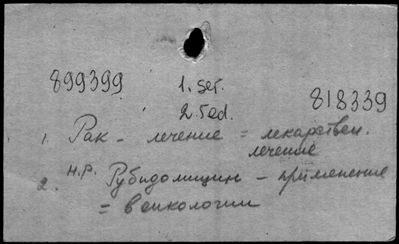 899399 1. ser.
2. red. 818339
1. Рак - лечение = лекарствен.
лечение
2. н.р. Рубидомицин - применение
= в онкологии